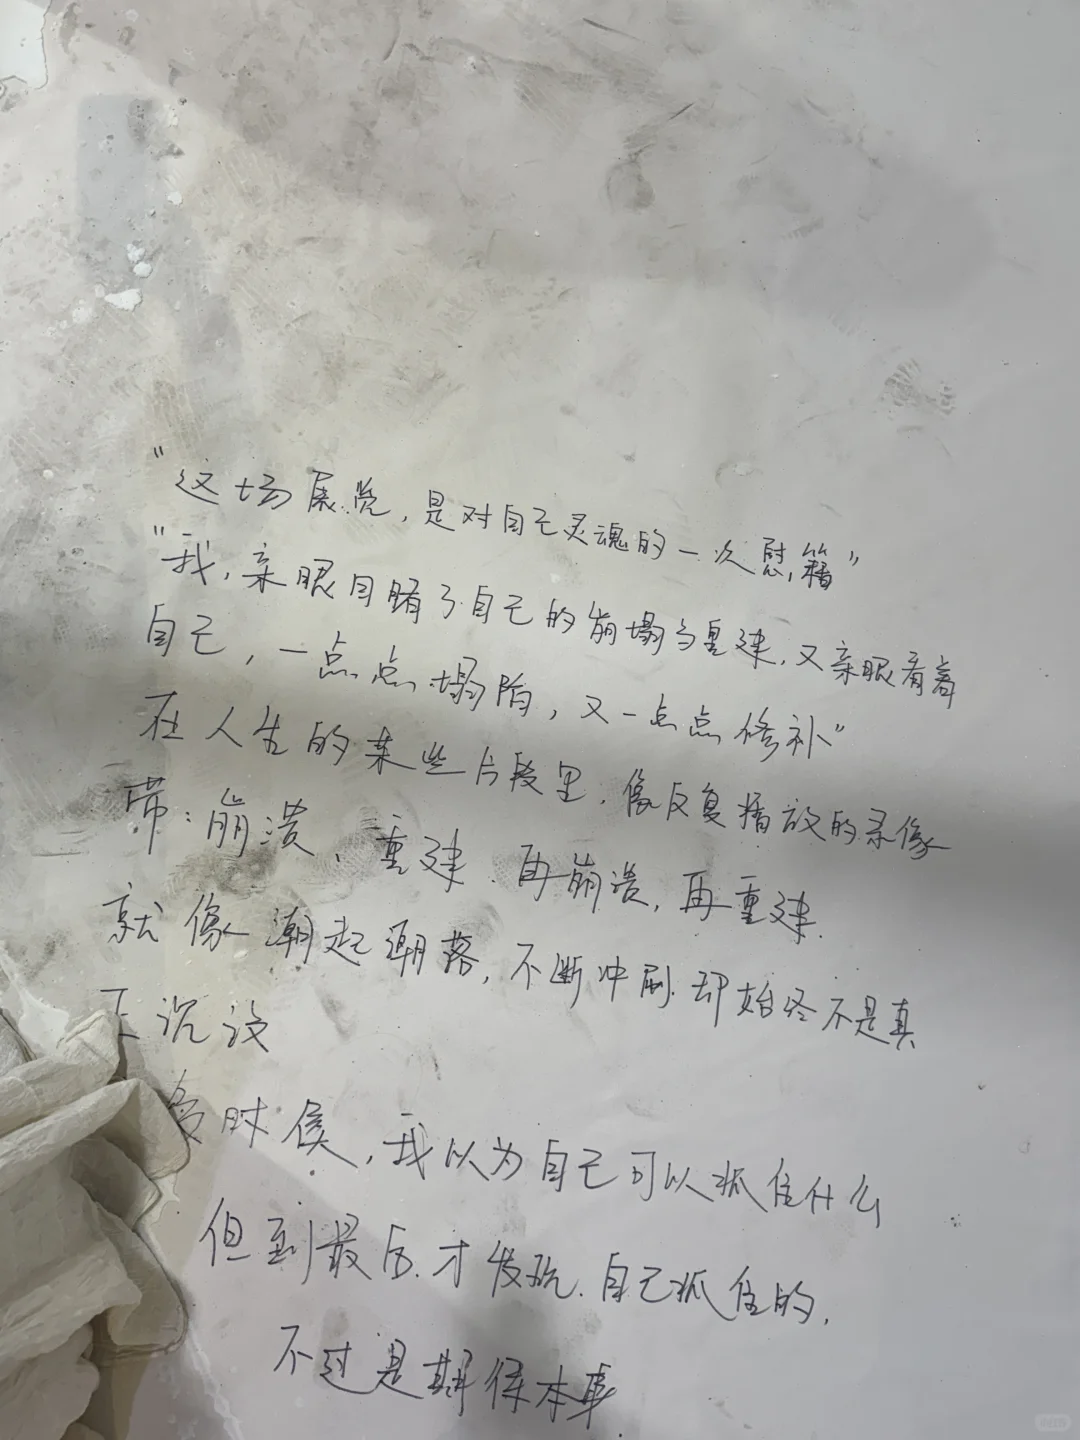 "这场展览，是对自己灵魂的一次慰籍"
"我，亲眼目睹了自己的崩塌与重建，又亲眼看着
自己，一点点塌陷，又一点点修补"
在人生的某些片段里，像反复播放的录像
带：崩溃、重建、再崩溃，再重建.
就像潮起潮落，不断冲刷.却始终不是真
正沉没
多时候，我以为自己可以抓住什么
但到最后.才发现.自己抓住的，
不过是期待本事